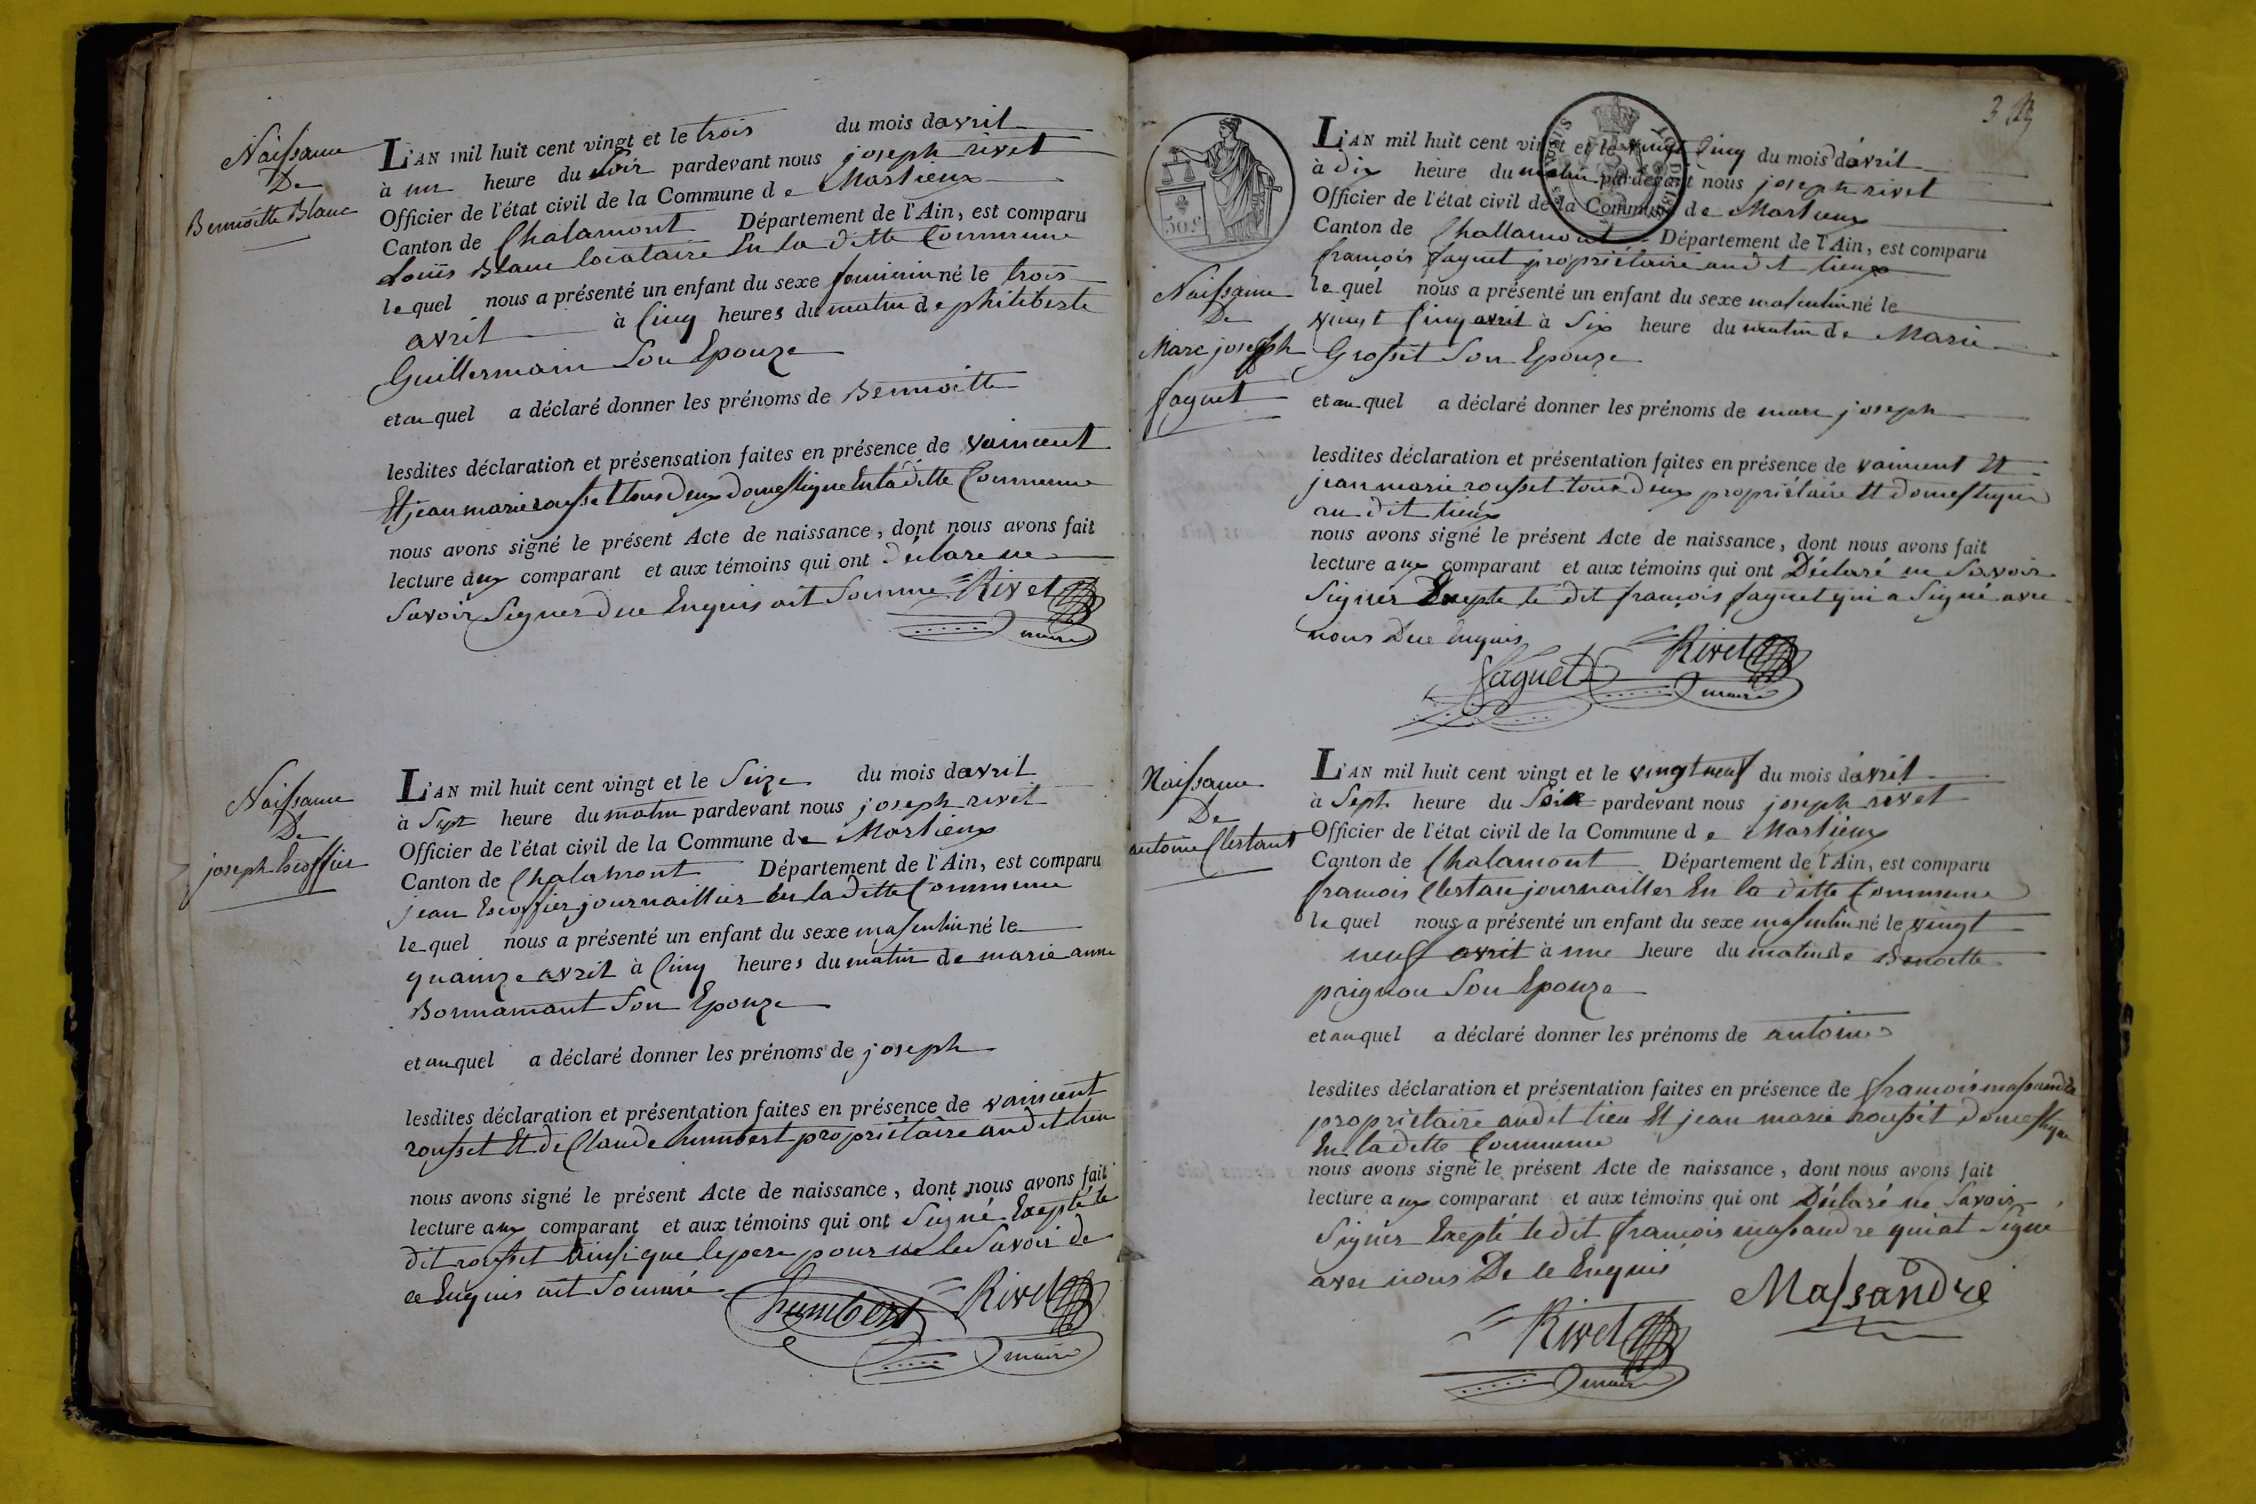 Naissance
De
Bennoitte Blanc
L'AN mil huit cent vingt et le trois du mois davril
à un heure du soir pardevant nous joseph rivet
Officier de l'état civil de la Commune de Marlieux
Canton de Chalamont Département de l'Ain, est comparu
Louis Blanc locataire En la ditte Commune
lequel nous a présenté un enfant du sexe feminin né le trois
avril à Cinq heures du matin de philiberte
Guillermain Son Epouze
et auquel a déclaré donner les prénoms de Bennoitte
lesdites déclaration et présensation faites en présence de vaincent
Et jean marie rousset tous deux domestique En la ditte Commune
nous avons signé le présent Acte de naissance, dont nous avons fait
lecture aux comparant et aux témoins qui ont déclare ne
Savoir Signer due Enquis ait Somme Rivet
maire
Naissance
De
joseph Escoffier
L'AN mil huit cent vingt et le Seize du mois davril
à Sept heure du matin pardevant nous joseph rivet
Officier de l'état civil de la Commune de Marlieux
Canton de Chalamont Département de l'Ain, est comparu
jean Escoffier journaillier En la ditte Commune
lequel nous a présenté un enfant du sexe masculin né le
quainze avril à Cinq heures du matin de marie anne
Bonnamant Son Epouze
et auquel a déclaré donner les prénoms de joseph
lesdites déclaration et présentation faites en présence de vaincent
rousset Et de Claude humbert propriétaire audit lieu
nous avons signé le présent Acte de naissance, dont nous avons fait
lecture aux comparant et aux témoins qui ont Signé Exepté le
dit rousset ainsi que le pere pour ne le Savoir de
ce Enquis ait Sommé
humbert Rivet
maire
3
50 c
Naissance
De
Marc joseph
faguet
L'AN mil huit cent vingt et le vingt Cinq du mois davril
à dix heure du matin pardevant nous joseph rivet
Officier de l'état civil de la Commune de Marlieux
Canton de Challamont Département de l'Ain, est comparu
francois faguet propriétaire audit lieux
lequel nous a présenté un enfant du sexe masculin né le
vingt Cinq avril à Six heure du matin de Marie
Grosset Son Epouze
et auquel a déclaré donner les prénoms de marc joseph
lesdites déclaration et présentation faites en présence de vaincent Et
jean marie rousset tous deux propriétaire Et domestique
au dit lieux
nous avons signé le présent Acte de naissance, dont nous avons fait
lecture aux comparant et aux témoins qui ont Déclaré ne Savoir
Signer Exepté le dit françois faguet qui a Signé avec
nous Due Enquis
faguet Rivet
maire
Naissance
De
antoine Clertant
L'AN mil huit cent vingt et le vingt neuf du mois davril
à Sept heure du Soir pardevant nous joseph rivet
Officier de l'état civil de la Commune de Marlieux
Canton de Chalamont Département de l'Ain, est comparu
francois Clertan journaillier En la ditte Commune
lequel nous a présenté un enfant du sexe masculin né le vingt
neuf avril à une heure du matin de Benoitte
paignon Son Epouze
et auquel a déclaré donner les prénoms de antoine
lesdites déclaration et présentation faites en présence de francois massandre
propriétaire audit lieu Et jean marie rousset domestique
En la ditte Commune
nous avons signé le présent Acte de naissance, dont nous avons fait
lecture aux comparant et aux témoins qui ont Déclaré ne Savoir
Signer Exepté le dit francois massandre qui at Signé
avec nous De ce Enquis
Massandre
Rivet
maire